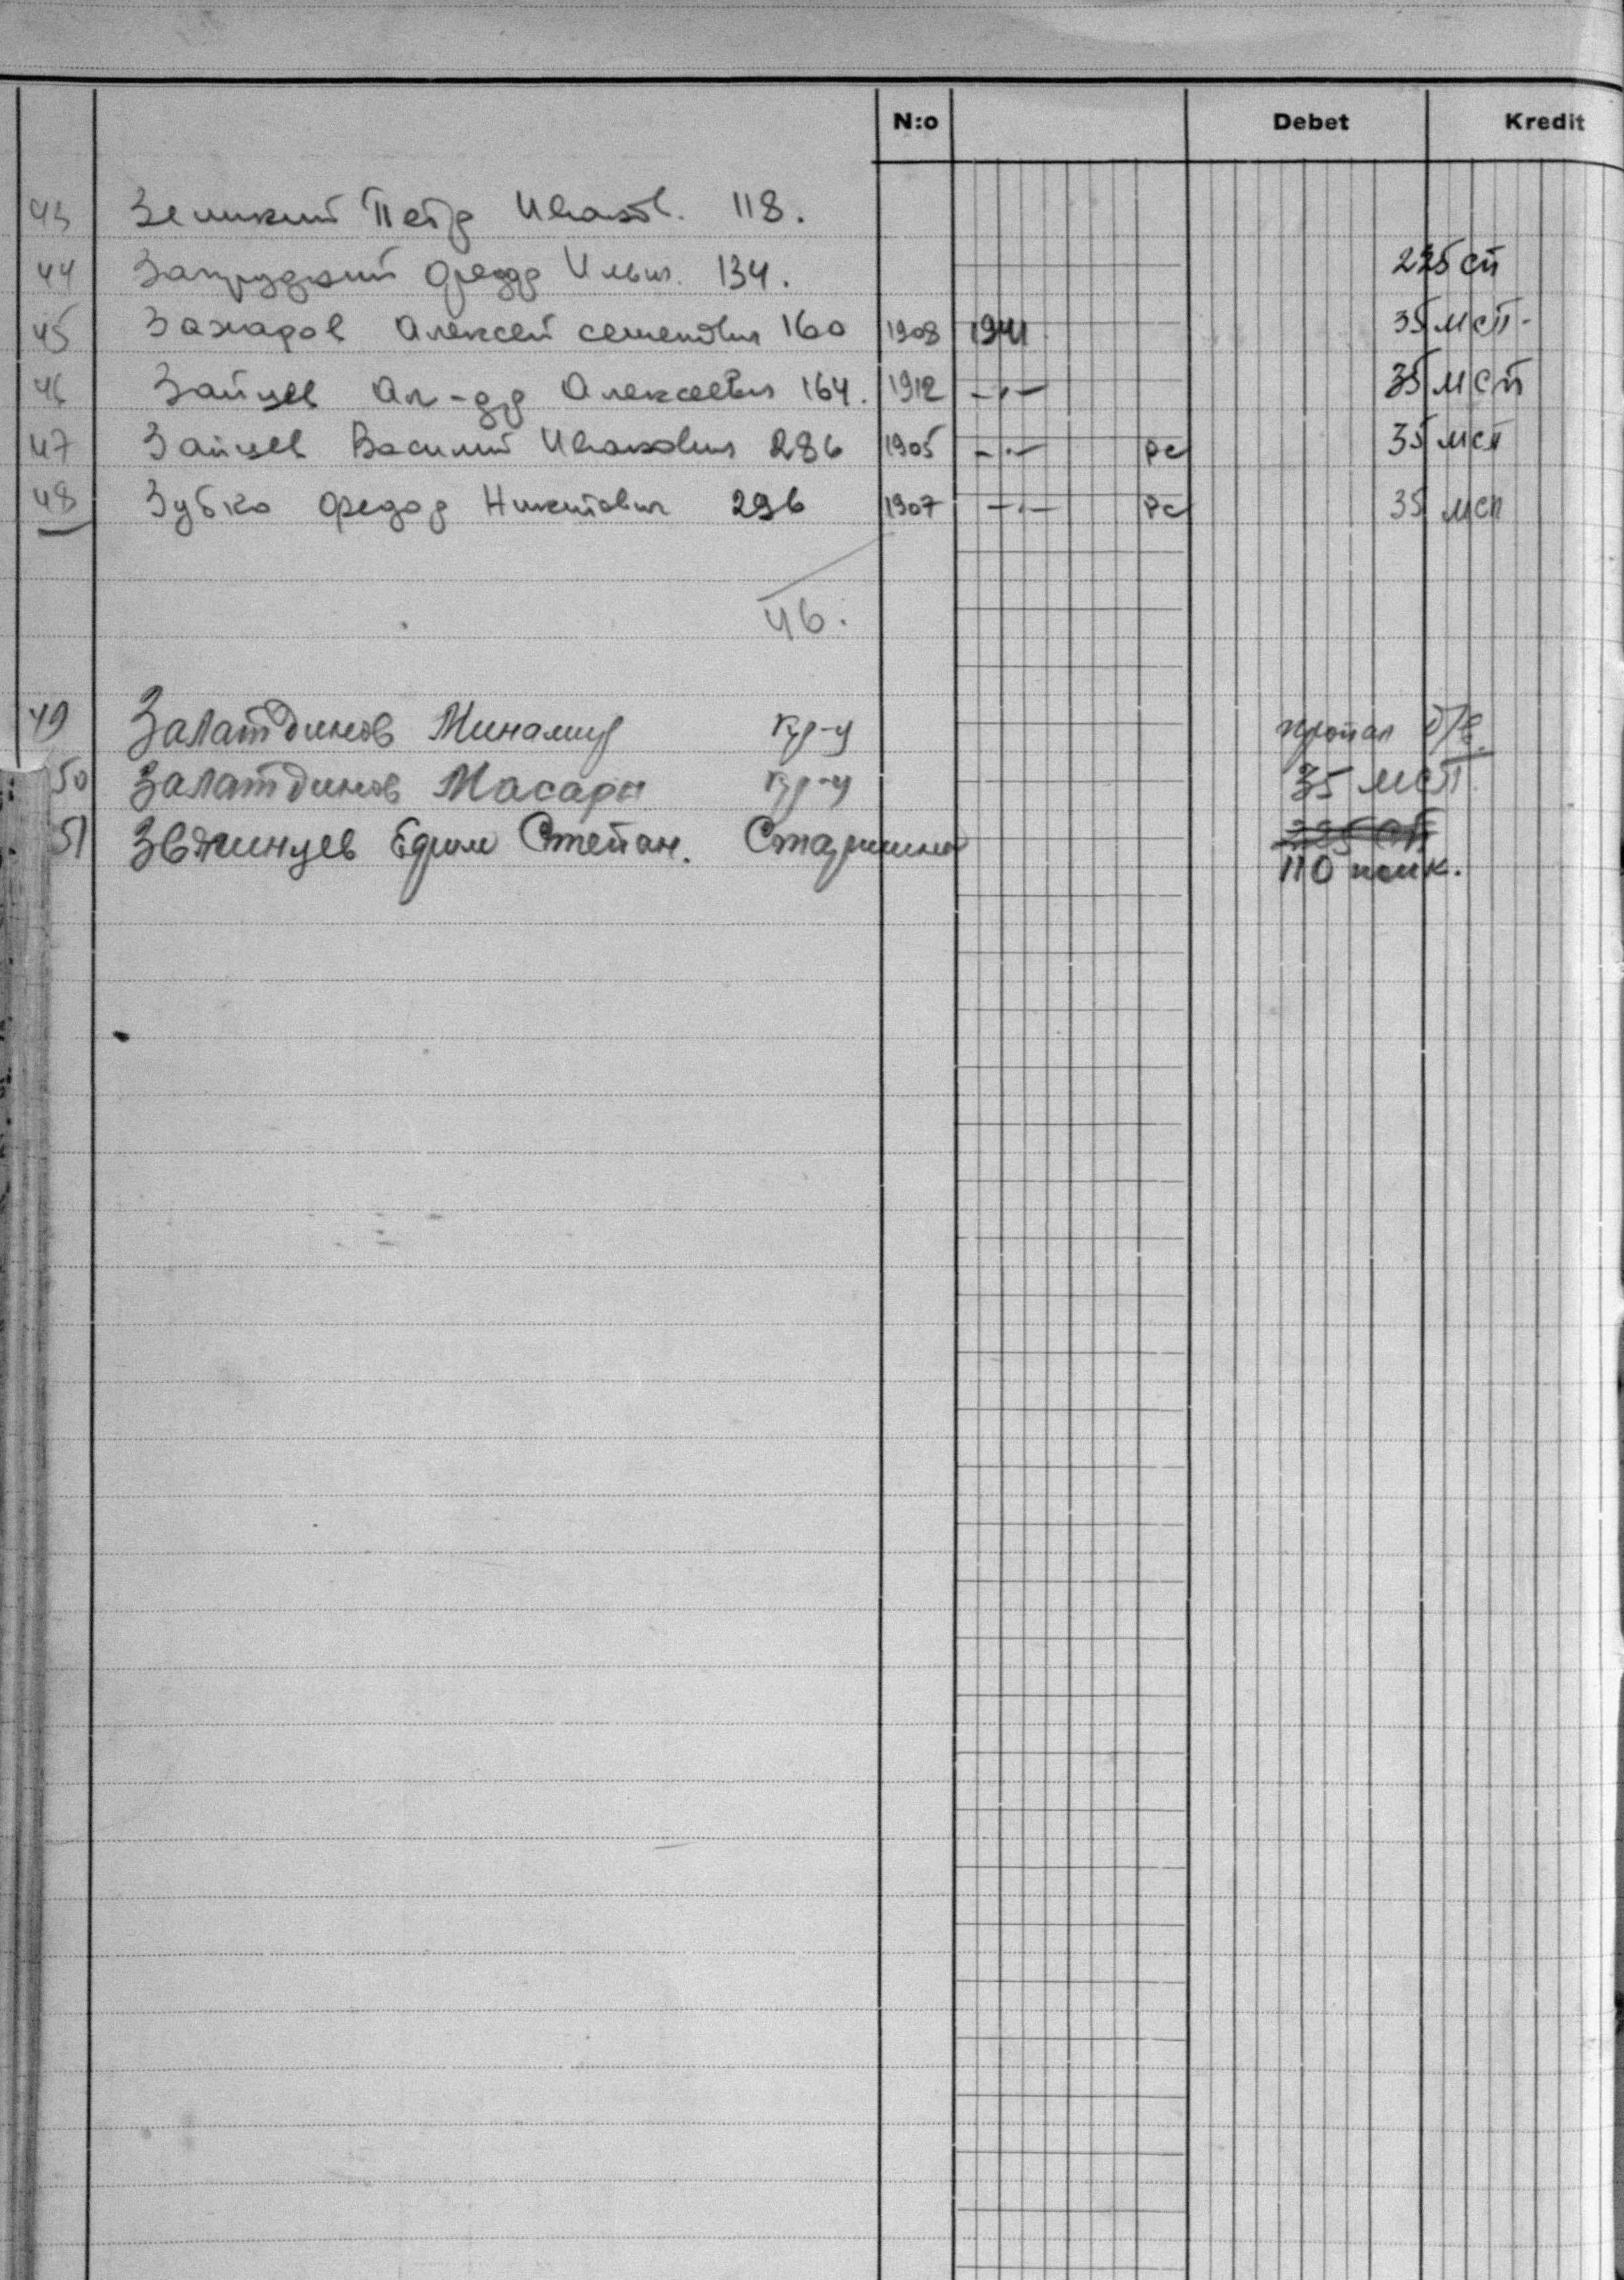 N:o Debet Kredit
43 Зеликий Петр Иванов. 118.
44 Запрудский Федор Ильич. 134. 225 сп
45 Захаров Алексей Семенович 160 1908 1941 35 мсп-
46 Зайцев Ал-др Алексеевич 164. 1912 -·- 35 мсп
47 Зайцев Василий Иванович 286 1905 -·- рс 35 мсп
48 Зубко Федор Никитович 296 1907 -·- рс 35 мсп
46.
49 Залатдинов Минамир кр-ц пропал б/в.
50 Залатдинов Масари кр-ц 35 мсп.
51 Звягинцев Ефим Степан. Старшина 225 сп
110 полк.